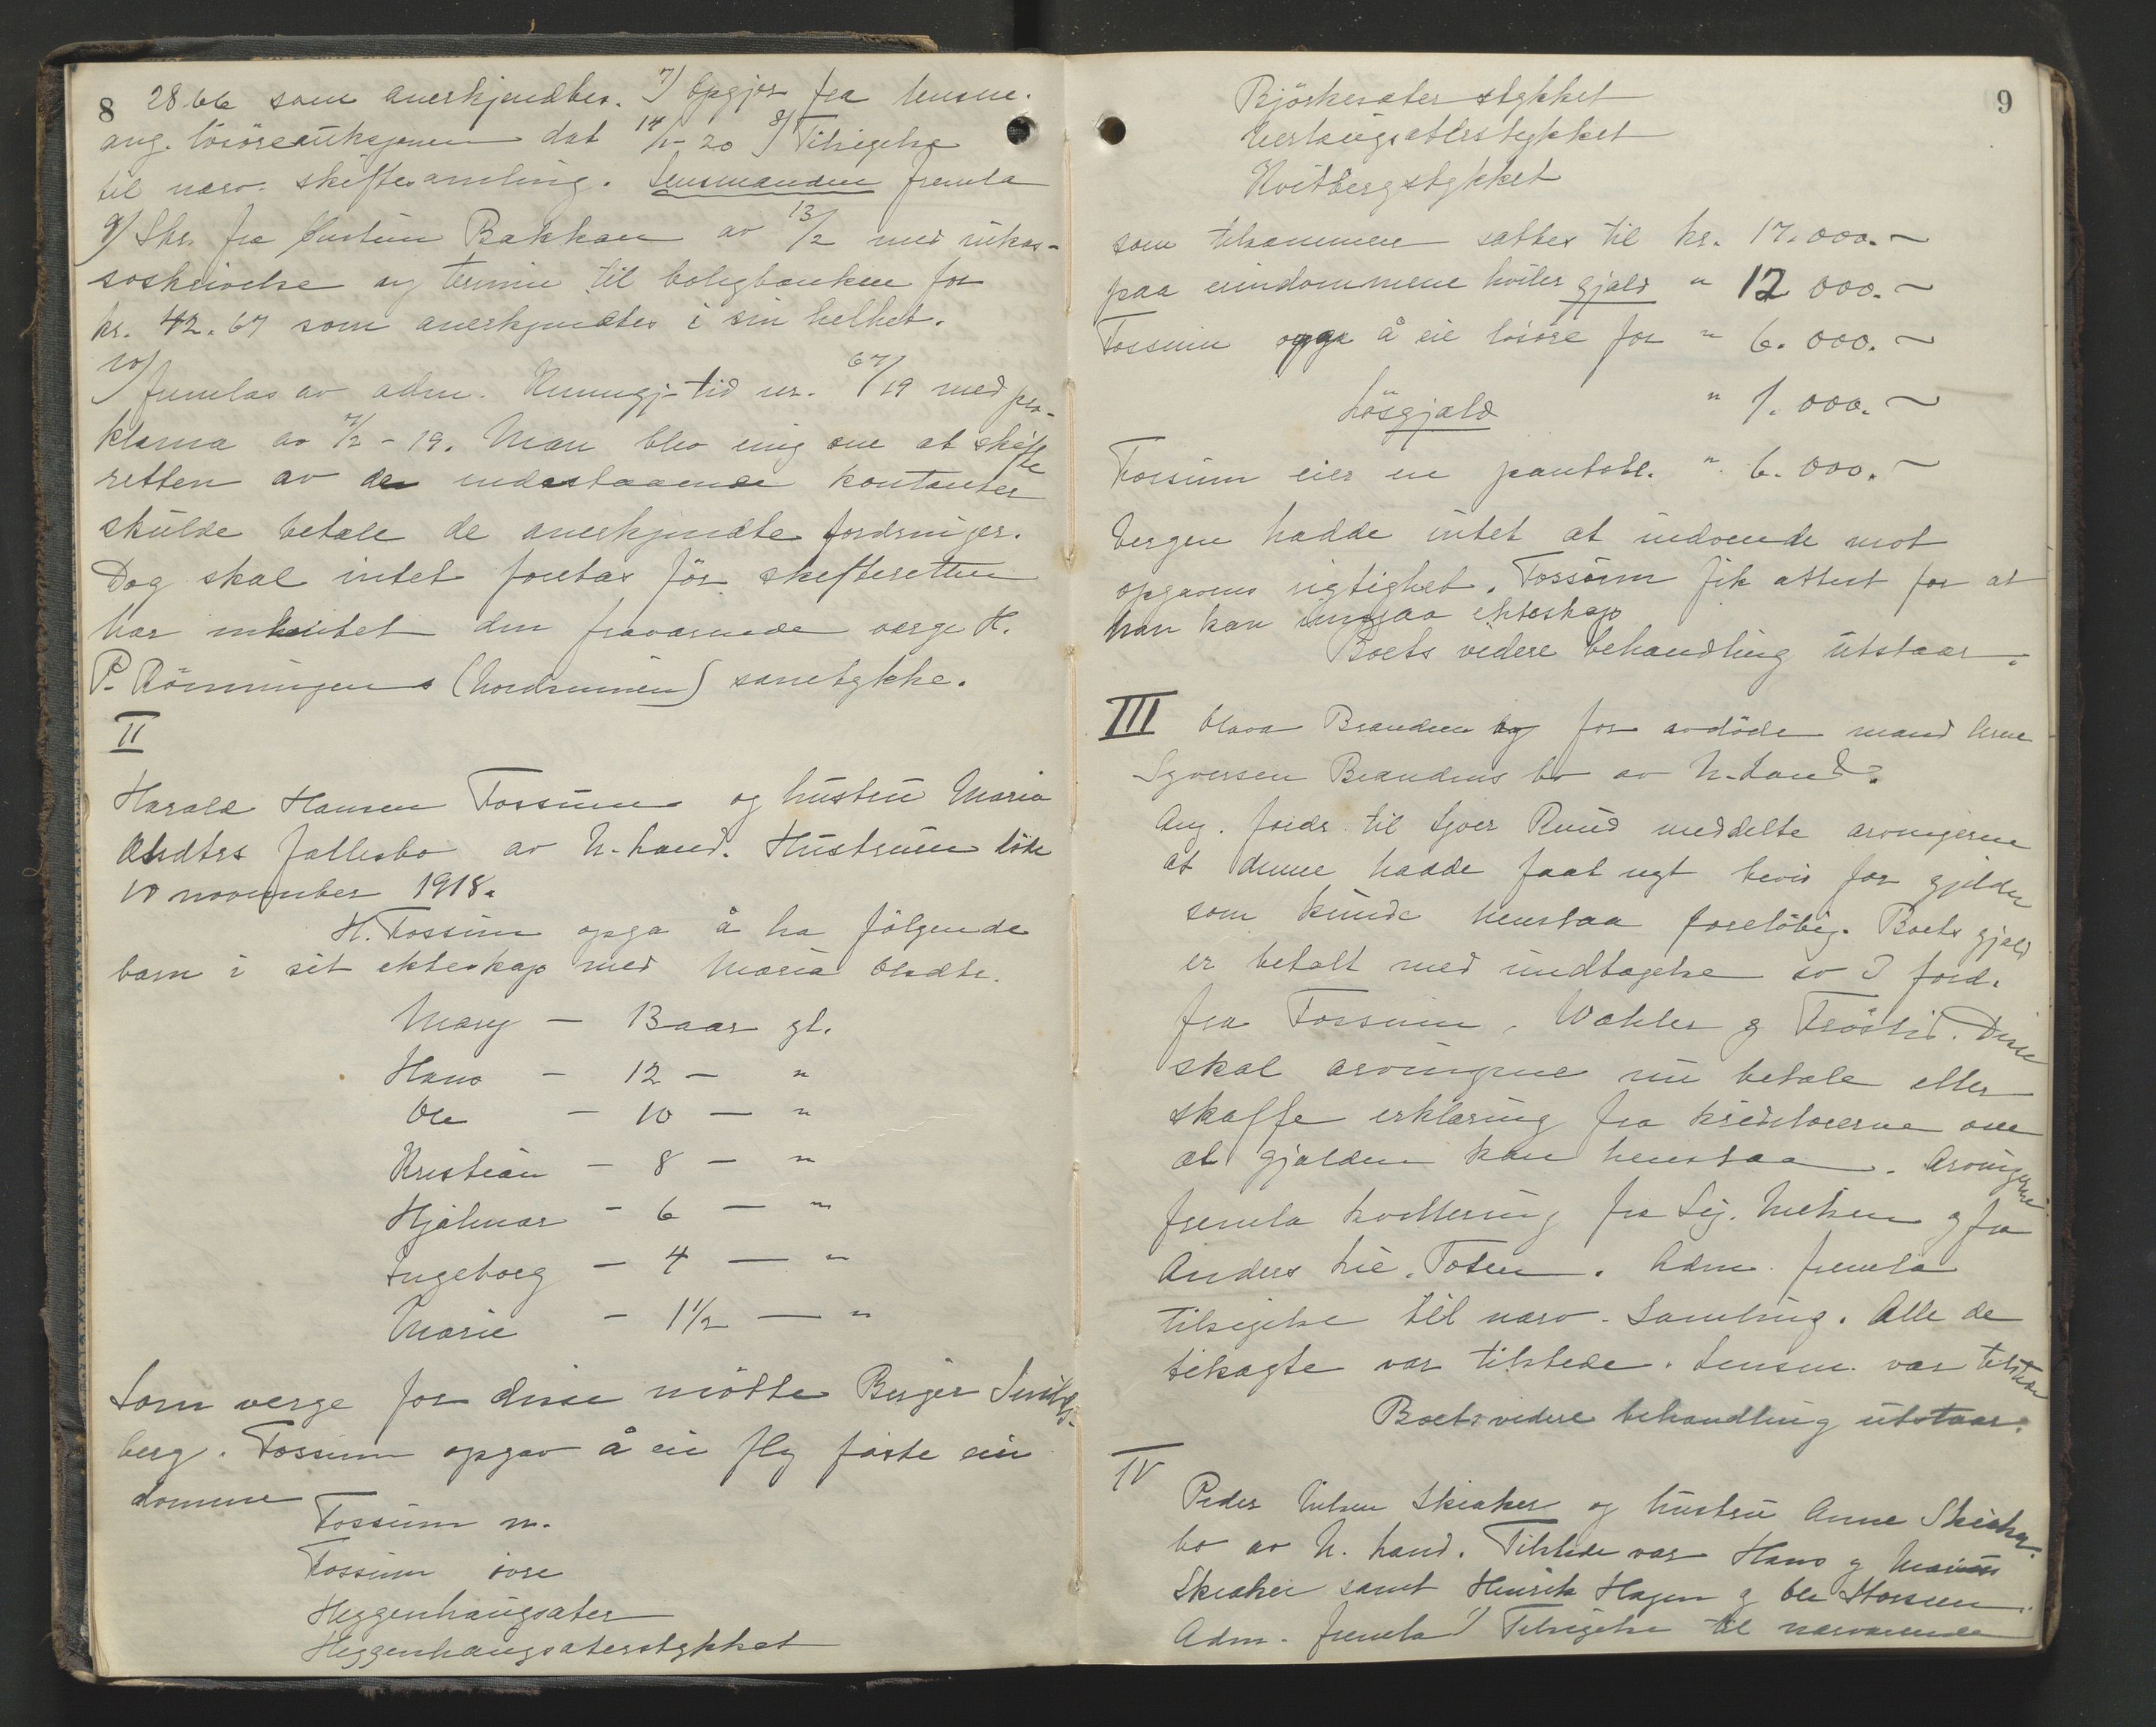 8
2866 som anerkjendtes. 7) Opgjør fra lensm.
ang. løsøreauksjonen dat 14/1-20 8) Tilsigelse
til nærv. skiftesamling. Lensmanden fremla
9) Skr. fra Bakken av 13/2 med inkas-
soskrivelse ang termin til boligbanken for
kr. 42.67 som anerkjendtes i sin helhet.
10) fremlas av adm. Kunngj-tid nr. 67/19 med pro-
klama av 7/2-19. Man blev enig om at skifte
retten av de indestaaende kontanter
skulde betale de anerkjendte fordringer.
Dog skal intet foretas før skifteretten
har innhentet den fraværende verge H.
P. Rönningens (Nordrumen) samtykke.
II
Harald Hansen Fossum og hustru Maria
Olsdtrs fællesbo av N-Land. Hustruen døde
10 november 1918.
H. Fossum opga å ha følgende
barn i sit ekteskap med Maria Olsdtr.
Mary - 13 aar gl.
Hans - 12 - "
Ole - 10 - "
Kristian - 8 - "
Hjalmar - 6 - "
Ingeborg - 4 - "
Marie - 1 1/2 - "
Som verge for disse møtte Birger
berg. Fossum opgav å eie flg faste eien
domme
Fossum n.
Fossum øvre
Heggenhaugsæter
Heggenhaugsæterstykket
9
Björkesæter stykket
Kvitbergstykket
som tilsammen sattes til kr. 17.000.-
paa eiendommene hviler gjæld " 12 000.-
Fossum opga å eie løsøre for " 6.000.-
Løsgjæld " 1.000.-
Fossum eier en pantobl. " 6.000.-
Vergen hadde intet at indvende mot
opgavens rigtighet. Fossum fik attest for at
han kan inngaa ekteskap
Boets videre behandling utstaar.
III Olava Branden og for avdöde mand Arne
Syversen Brandens bo av N-Land.
Ang. fordr. til Sjver Ruud meddelte arvingerne
at denne hadde faat nyt bevis for gjelden
som kunde henstaa foreløbig. Boets gjæld
er betalt med undtagelse av 3 ford.
fra Fossum, Wahler og Tröstid. Disse
skal arvingerne nu betale eller
skaffe erklæring fra kreditorerne om
at gjælden kan henstaa. Arvingerne
fremla kvittering fra Sig. Nielsen og fra
Anders Lie, Toten. Adm. fremla
tilsigelse til nærv. Samling. Alle de
tilsagte var tilstede. Lensm. var tilstede
Boets videre behandling utstaar.
IV
Peder Nilsen Skiaker og hustru Anne Skiaker
bo av N. Land. Tilstede var Hans og
Skiaker samt Henrik Hagen og Ole
Adm. fremla 1) Tilsigelse til nærværende